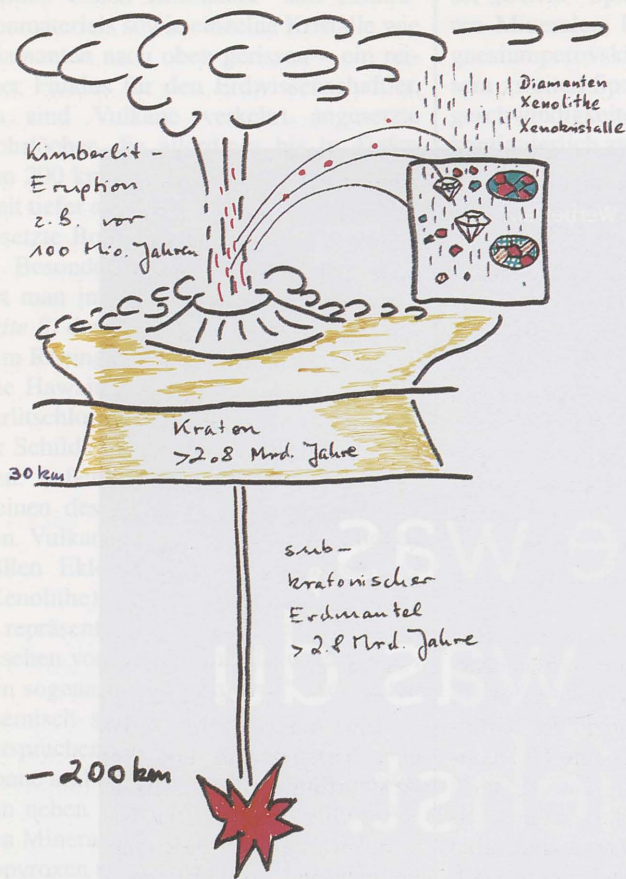 Diamanten
Xenolithe
Xenokristalle
Kimberlit-
Eruption
z.B vor
100 Mio. Jahren
Kraton
>2.8 Mrd. Jahre
30 km
sub-
kratonischer
Erdmantel
>2.8 Mrd. Jahre
-200km